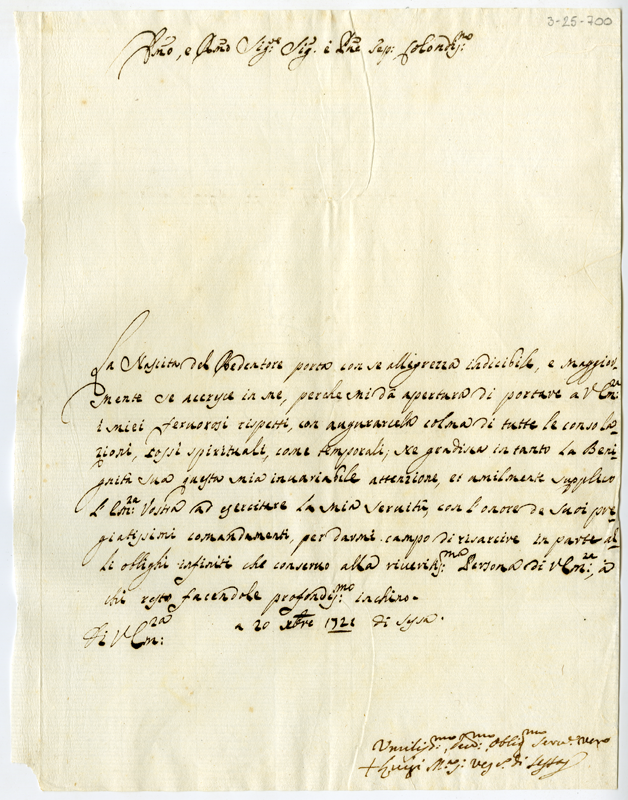 3-25-700
Emo, e Rmo Sig.re Sig. e Pne Sep: Colendis:mo
La Nascita del Redentore porta con se allegrezza indicibile, e maggior=
mente se accresce in me, perche mi dà apertura di portare a V Em:za
i miei fervorosi rispetti, con augurarcela colma di tutte le consola=
zioni, cossi spirituali, come temporali; Ne gradisca in tanto la Beni=
gnità sua questa mia invariabile attenzione, et umilmente supplico
l'Em:za Vostra ad esercitare la mia servitù, con l'onore de suoi pre=
giatissimi comandamenti, per darmi campo di risarcire in parte al=
le oblighi infiniti che conservo alla riveritis:ma Persona di V Em:za, à
chi resto facendole profondis:mo inchino.
Di V Em:za a 20 Xbre 1721 di Sessa.
Umilis:mo Dev:mo Oblig:mo Serv.e vero
+ Luigi M.a Vesc.o di Sessa